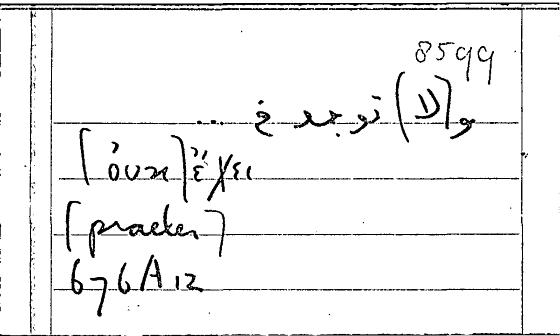 8599
و(لا) توجد في ...
[οὐκ] ἔχει
[praeter]
676A12